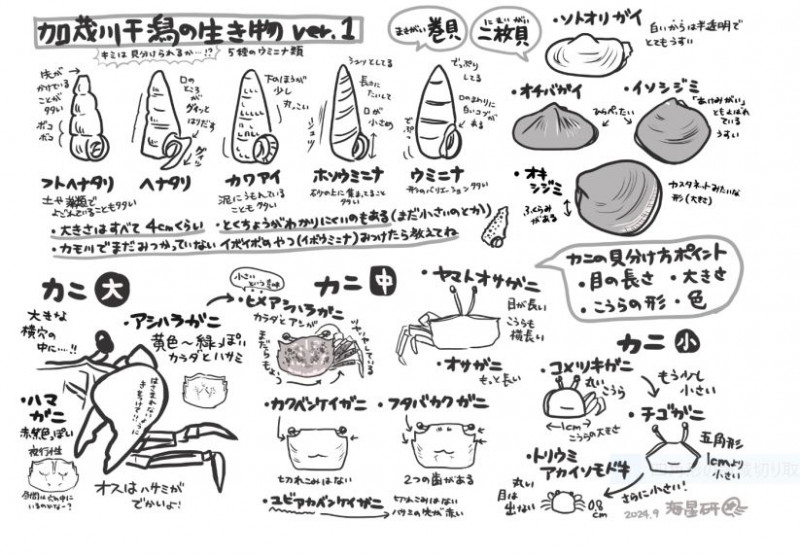 加茂川干潟の生き物 ver.1
まきがい
巻貝
にまいがい
二枚貝
キミは見分けられるか…!? 5種のウミニナ類
先が
かけている
ことが
多い
ボコ
ボコ
フトヘナタリ
口の
ところ
が
グイッと
はりだす
グイン
ヘナタリ
下のほうが
少し
丸っこい
カワアイ
泥にうもれている
こともタタい
うっとしてる
長さに
たいして
口が
小さめ
ホソウミニナ
でっぷり
してる
口のまわりに
白いコブが
ある
ウミニナ
形のバリエーションタタい
・大きさはすべて4cmくらい
・とくちょうがわかりにくいのもある(まだ小さいのとか)
・カモ川でまだみつかっていない イボイボのやつ(イボウミニナ)みつけたら教えてね
・ソトオリガイ
白いからは半透明で
とてもうすい
・オチバガイ
ひらべったい
・イソシジミ
ともよばれ
ている
うすい
・オキ
シジミ
ふくらみ
がある
カスタネットみたいな
形(大きさ)
カニの見分け方ポイント
・目の長さ ・大きさ
・こうらの形 ・色
カニ 大
大きな
横穴の
中に…!!
・アシハラガニ
黄色〜緑っぽい
カラダとハサミ
はさまれないように
きをつけて!!
・ハマ
ガニ
赤紫色っぽい
夜行性
オスはハサミが
でかいよ!
カニ 中
小さい
という意味
・ヒメアシハラガニ
カラダとアシが
まだらもよう
・ヤマトオサガニ
目が長い
こうらも
横長い
・オサガニ
もっと長い
・カクベンケイガニ
切れこみはない
・フタバカクガニ
2つの歯がある
・ユビアカベンケイガニ
切れこみはない
ハサミの先が赤い
カニ 小
・コメツキガニ
丸いこうら
1cm
こうらの大きさ
もう少し
小さい
・チゴガニ
五角形
1cmより
小さい
・トリウミ
アカイソモドキ
丸い
目は
出ない
0.8
cm
さらに小さい!
2024.9 海星研